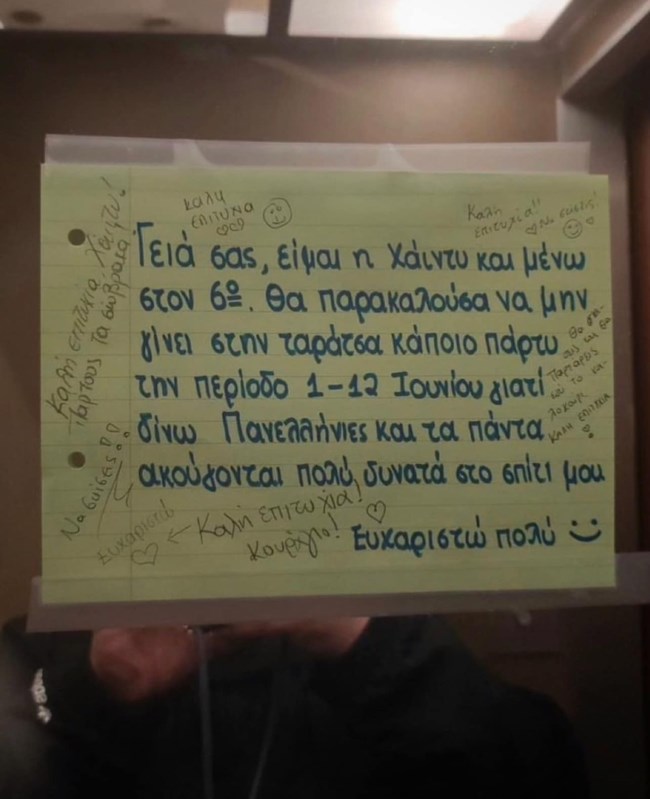 Καλή
επιτυχια
Καλή
επιτυχία!!
Να σκίσεις!
Καλή επιτυχία, Χάιντυ!
παρτους τα σώβρακα
Γειά σας, είμαι η Χάιντυ και μένω
στον 6º. Θα παρακαλούσα να μην
γίνει στην ταράτσα κάποιο πάρτυ
την περίοδο 1-12 Ιουνίου γιατί
δίνω Πανελλήνιες και τα πάντα
ακούγονται πολύ δυνατά στο σπίτι μου
Ευχαριστώ πολύ
το κα-
λοκαίρι
Καλή επιτυχία
!
Να σκίσεις!!
Ευχαριστώ
← Καλή επιτυχία!
Κουράγιο!